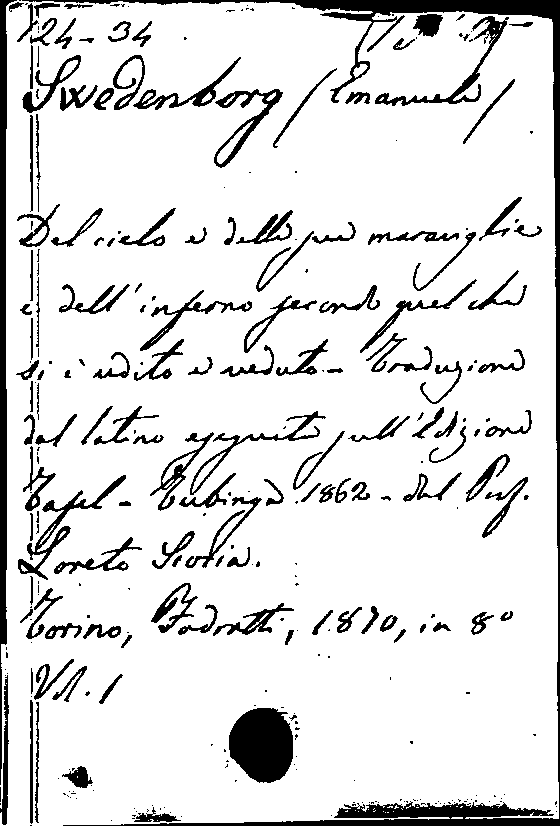 124-34
Swedenborg (Emanuele)
Del cielo e delle sue maraviglie
e dell'inferno secondo quel che
si è udito e veduto - Traduzione
dal latino eseguita sull'Edizione
Tafel - Tubinga 1862 - dal Prof.
Loreto Scocia.
Torino, Fodratti, 1870, in 8º
Vol. 1